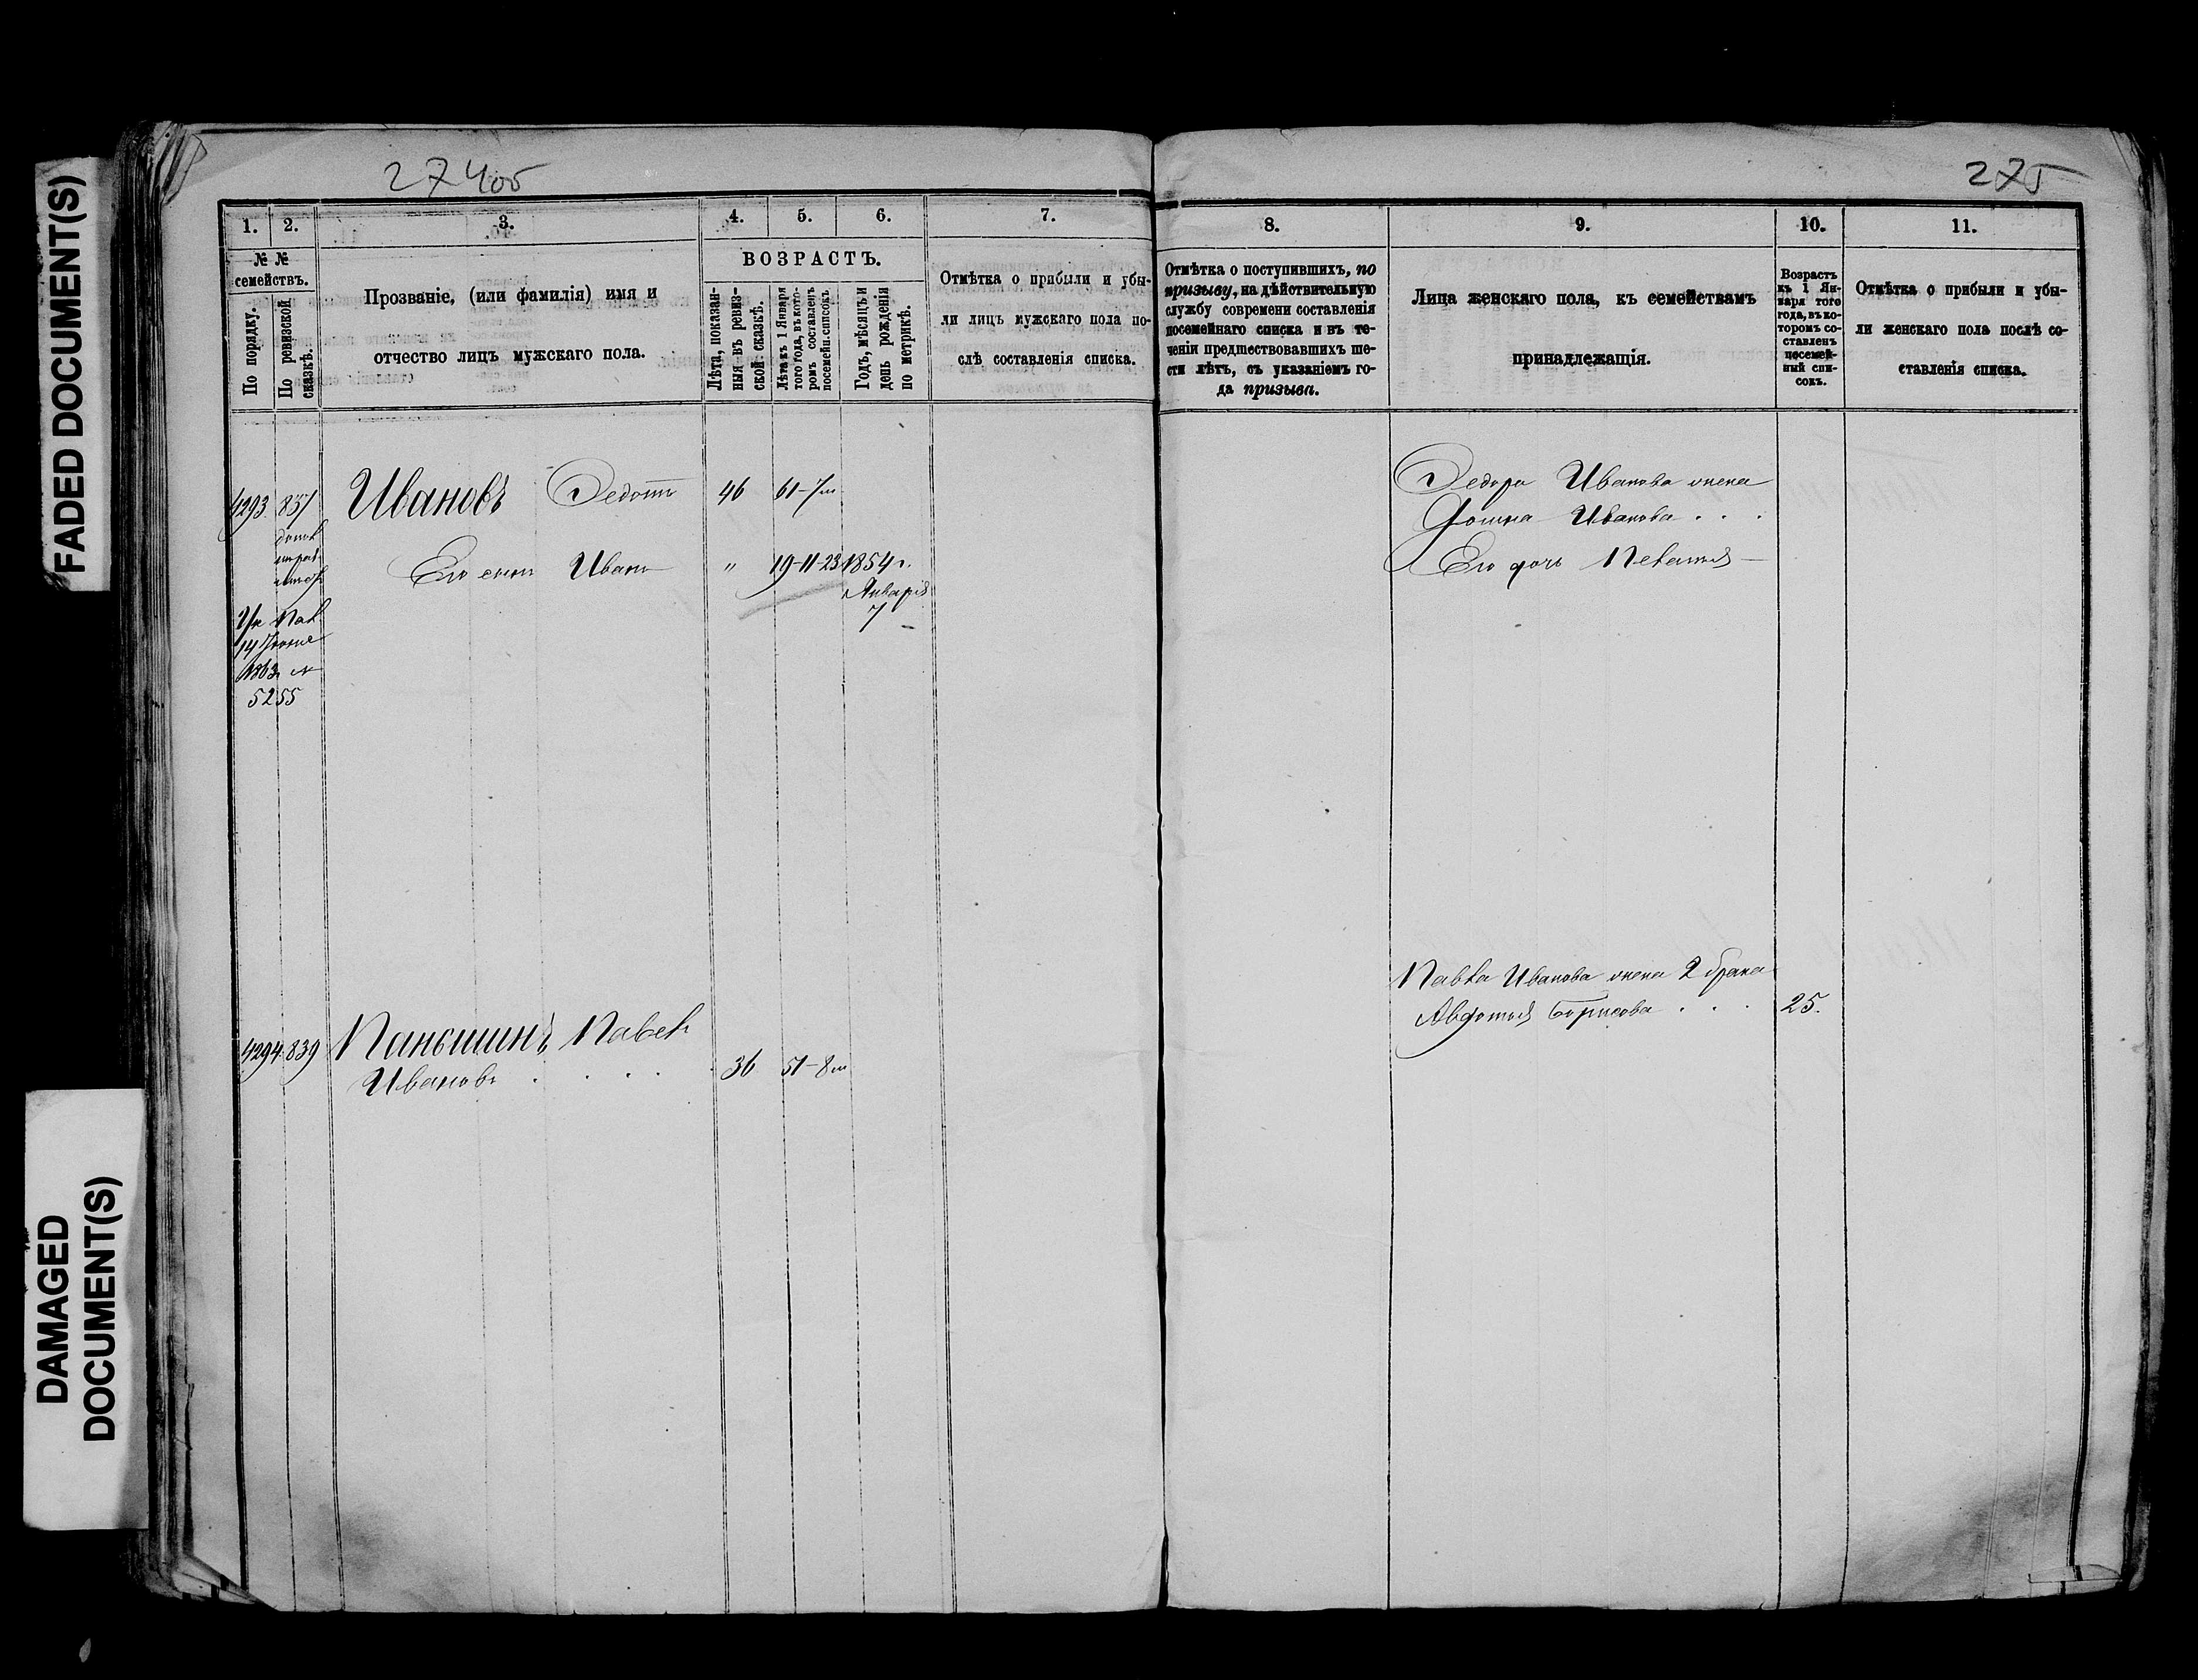 FADED DOCUMENT(S)
DAMAGED
DOCUMENT(S)
274об
1. 2. 3. 4. 5. 6. 7.
№ №
семействъ.
По порядку.
По ревизской
сказкѣ.
Прозваніе, (или фамилія) имя и
отчество лицъ мужскаго пола.
ВОЗРАСТЪ.
Лѣта, показан-
ныя въ ревиз-
ской сказкѣ.
Лѣта къ 1 Января
того года, въ кото-
ромъ составленъ
посемейн. списокъ
Годъ, мѣсяцъ и
день рожденія
по метрикѣ.
Отмѣтка о прибыли и убы-
ли лицъ мужскаго пола по-
слѣ составленія списка.
4293 837 Ивановъ Федотъ 46 61-7м
Его сынъ Иванъ " 19-11-23 1854 г.
Января
7
14 Іюня
1863 №
5255
4294 839 Паньшинъ Павелъ
Ивановъ . . . . 36 51-8м
275
8. 9. 10. 11.
Отмѣтка о поступившихъ, по
призыву, на дѣйствительную
службу современи составленія
посемейнаго списка и въ те-
ченіи предшествовавшихъ ше-
сти лѣтъ, съ указаніемъ го-
да призыва.
Лица женскаго пола, къ семействамъ
принадлежащія.
Возрастъ
къ 1 Ян-
варя того
года, въ ко-
торомъ со-
ставленъ
посемей-
ный спи-
сокъ.
Отмѣтка о прибыли и убы-
ли женскаго пола послѣ со-
ставленія списка.
Иванова жена
Иванова . . .
Его дочь Пелагея
Павла Иванова жена 2 брака
Авдотья Борисова . . . 25.